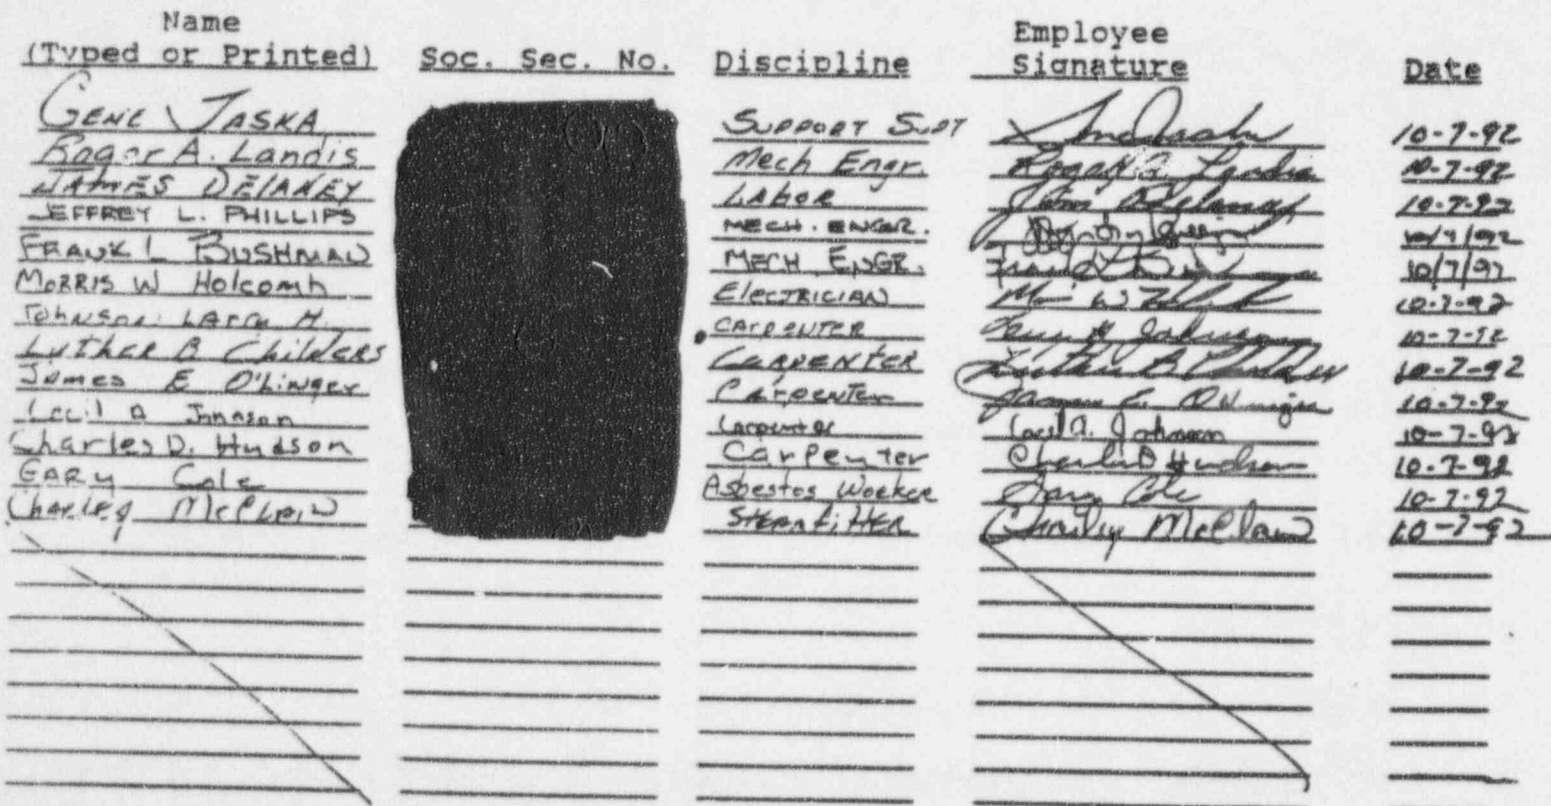 Name Employee
(Typed or Printed) Soc. Sec. No. Discipline Signature Date
GENE JASKA SUPPORT SUPT 10-7-92
Roger A. Landis Mech Engr. Roger A. Landis 10-7-92
JAMES DELANEY LABOR Jim Delaney 10-7-92
JEFFREY L. PHILLIPS MECH. ENGR. 10/7/92
FRANK L BUSHMAN MECH ENGR. 10/7/92
MORRIS W Holcomb ElecTRICIAN 10-7-92
Johnson Larry H. CARPENTER Larry H Johnson 10-7-92
LuTHER B ChilDERS CARPENTER Luther B Childers 10-7-92
James E O'Linger CArpenTer James E. O'Linger 10-7-92
Cecil A Johnson Carpenter Cecil A. Johnson 10-7-92
Charles D. Hudson Carpenter Charles D Hudson 10-7-92
GARY Cole Asbestos Worker Gary Cole 10-7-92
Charley McClain STEAmfiTTER Charley McClain 10-7-92